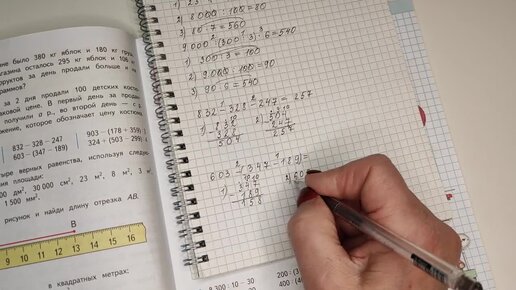 не было 380 кг яблок и 180 кг груш
газина осталось 295 кг яблок и 106 к
руктов за день продали больше и н
раммов?
за 2 дня продали 100 детских костю
наковой цене. В первый день за продан
получили a р., во второй день — c р
жение, которое обозначает цену костюма
832 - 328 - 247
603 - (347 - 189)
903 - (178 + 359)
324 + (503 - 299)
тыре верных равенства, используя следу-
ния площади:
00 дм², 30 000 см², 23 м², 8 м², 3 м²
1 500 мм².
рисунок и найди длину отрезка AB.
B
9 10 11 12 13 14 15 16 17
в квадратных метрах:
8 300 : 10 - 30
2) 8000 : 100 = 80
3) 80 · 7 = 560
9000 : (300 : 3) · 6 = 540
1) 300 : 3 = 100
2) 9000 : 100 = 90
3) 90 · 6 = 540
832 - 328 - 247 = 257
1) 832
- 328
504
2) 504
- 247
257
603 - (347 - 189) =
1) 347
- 189
158
2) 60